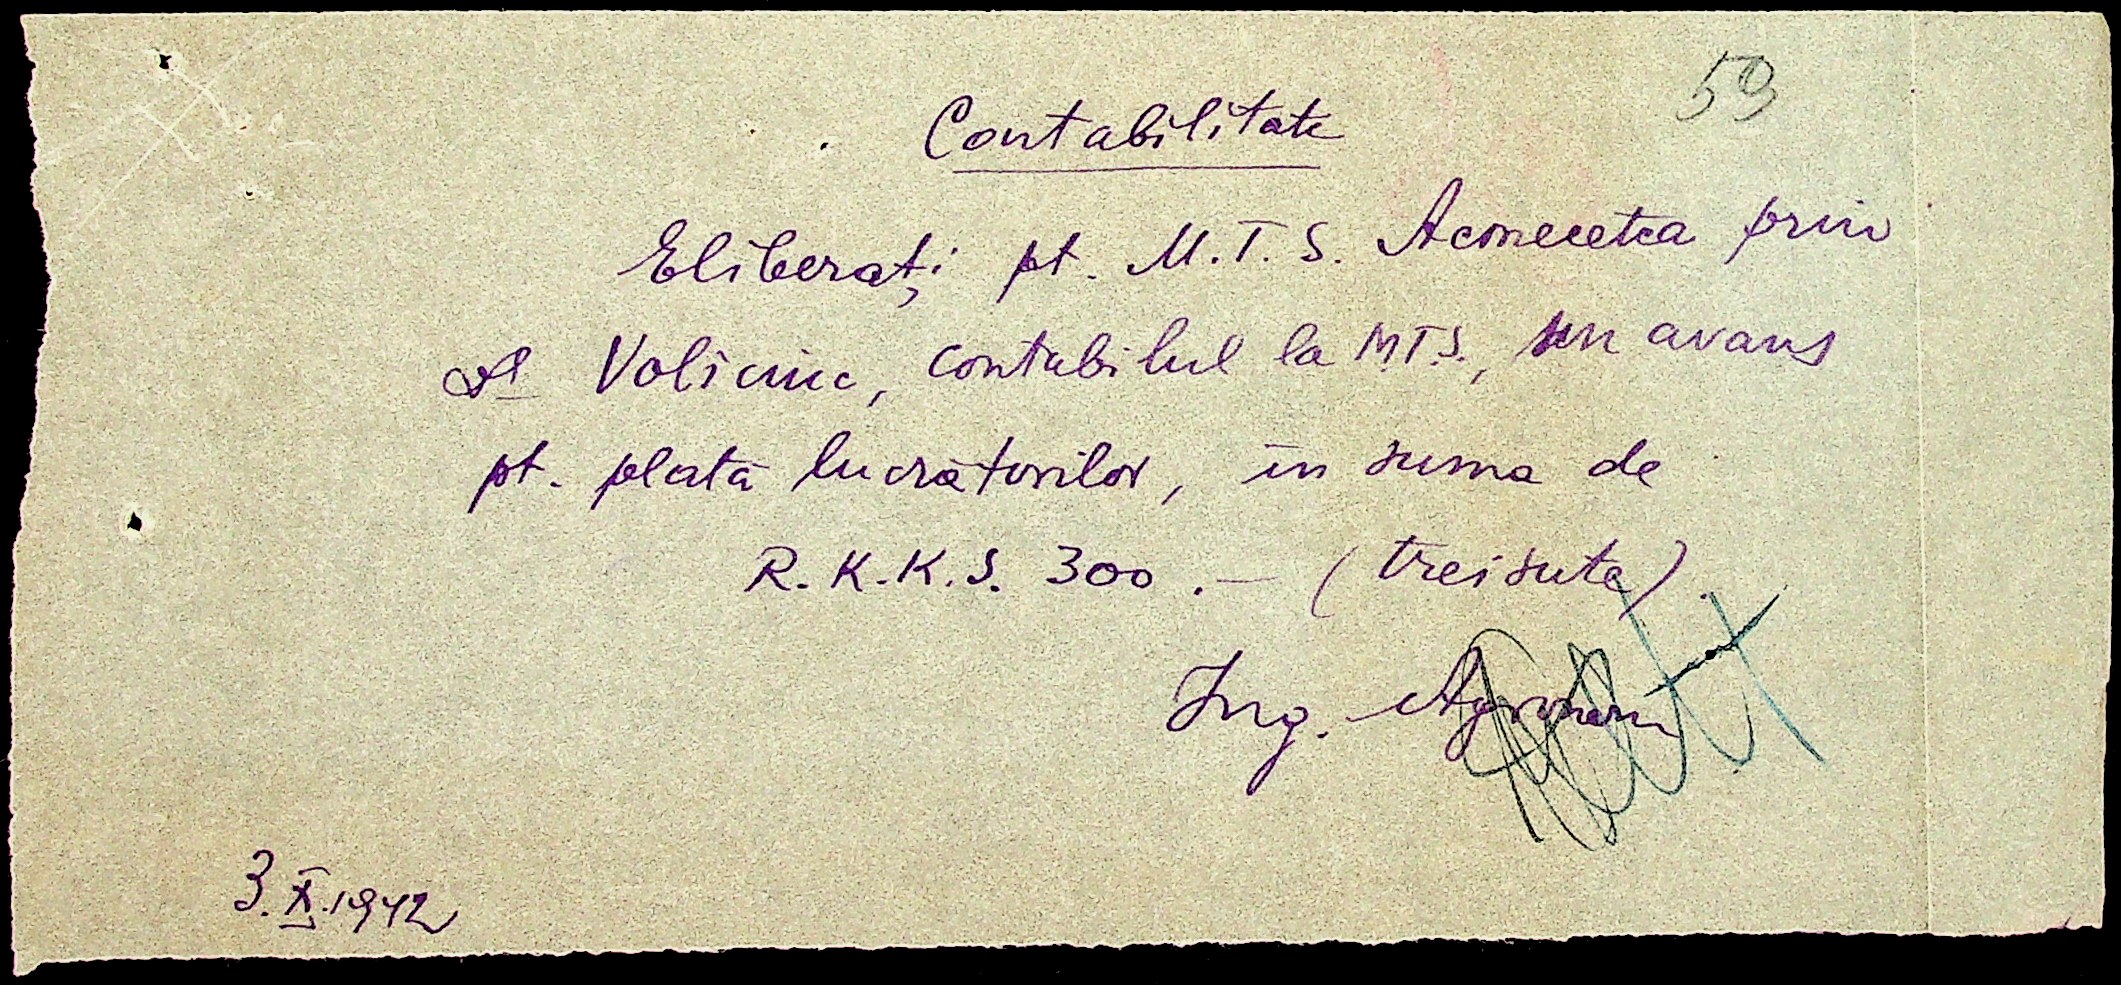 59
Contabilitate
Eliberați pt. M.T.S. prin
Dl Voliciuc, contabilul la MTS., un avans
pt. plata lucrătorilor, în suma de
R.K.K.S. 300.— (treisute).
Ing. Agronom
3.X.1942